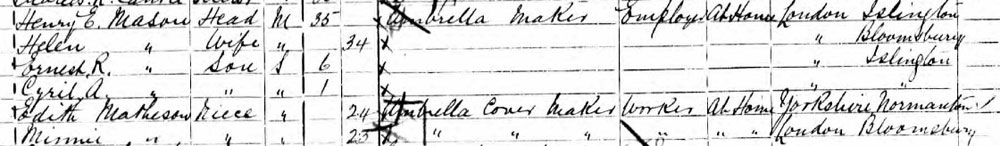 Henry C. Mason Head M 35 Umbrella Maker Employer At Home London Islington
Helen " Wife " 34 " Bloomsbury
Ernest R. " Son S 6 " Islington
Cyril A. " " " 1 " "
Edith Matheson Niece " 24 Umbrella Cover Maker Worker At Home Yorkshire Normanton
Minnie " " " 23 " " " " " " London Bloomsbury